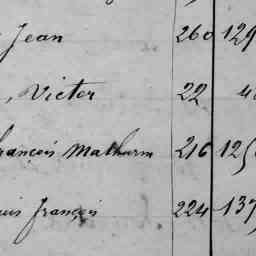 Jean 260 129
, Victor 22 4
rançois Mathurin 216 125
uis françois 224 137